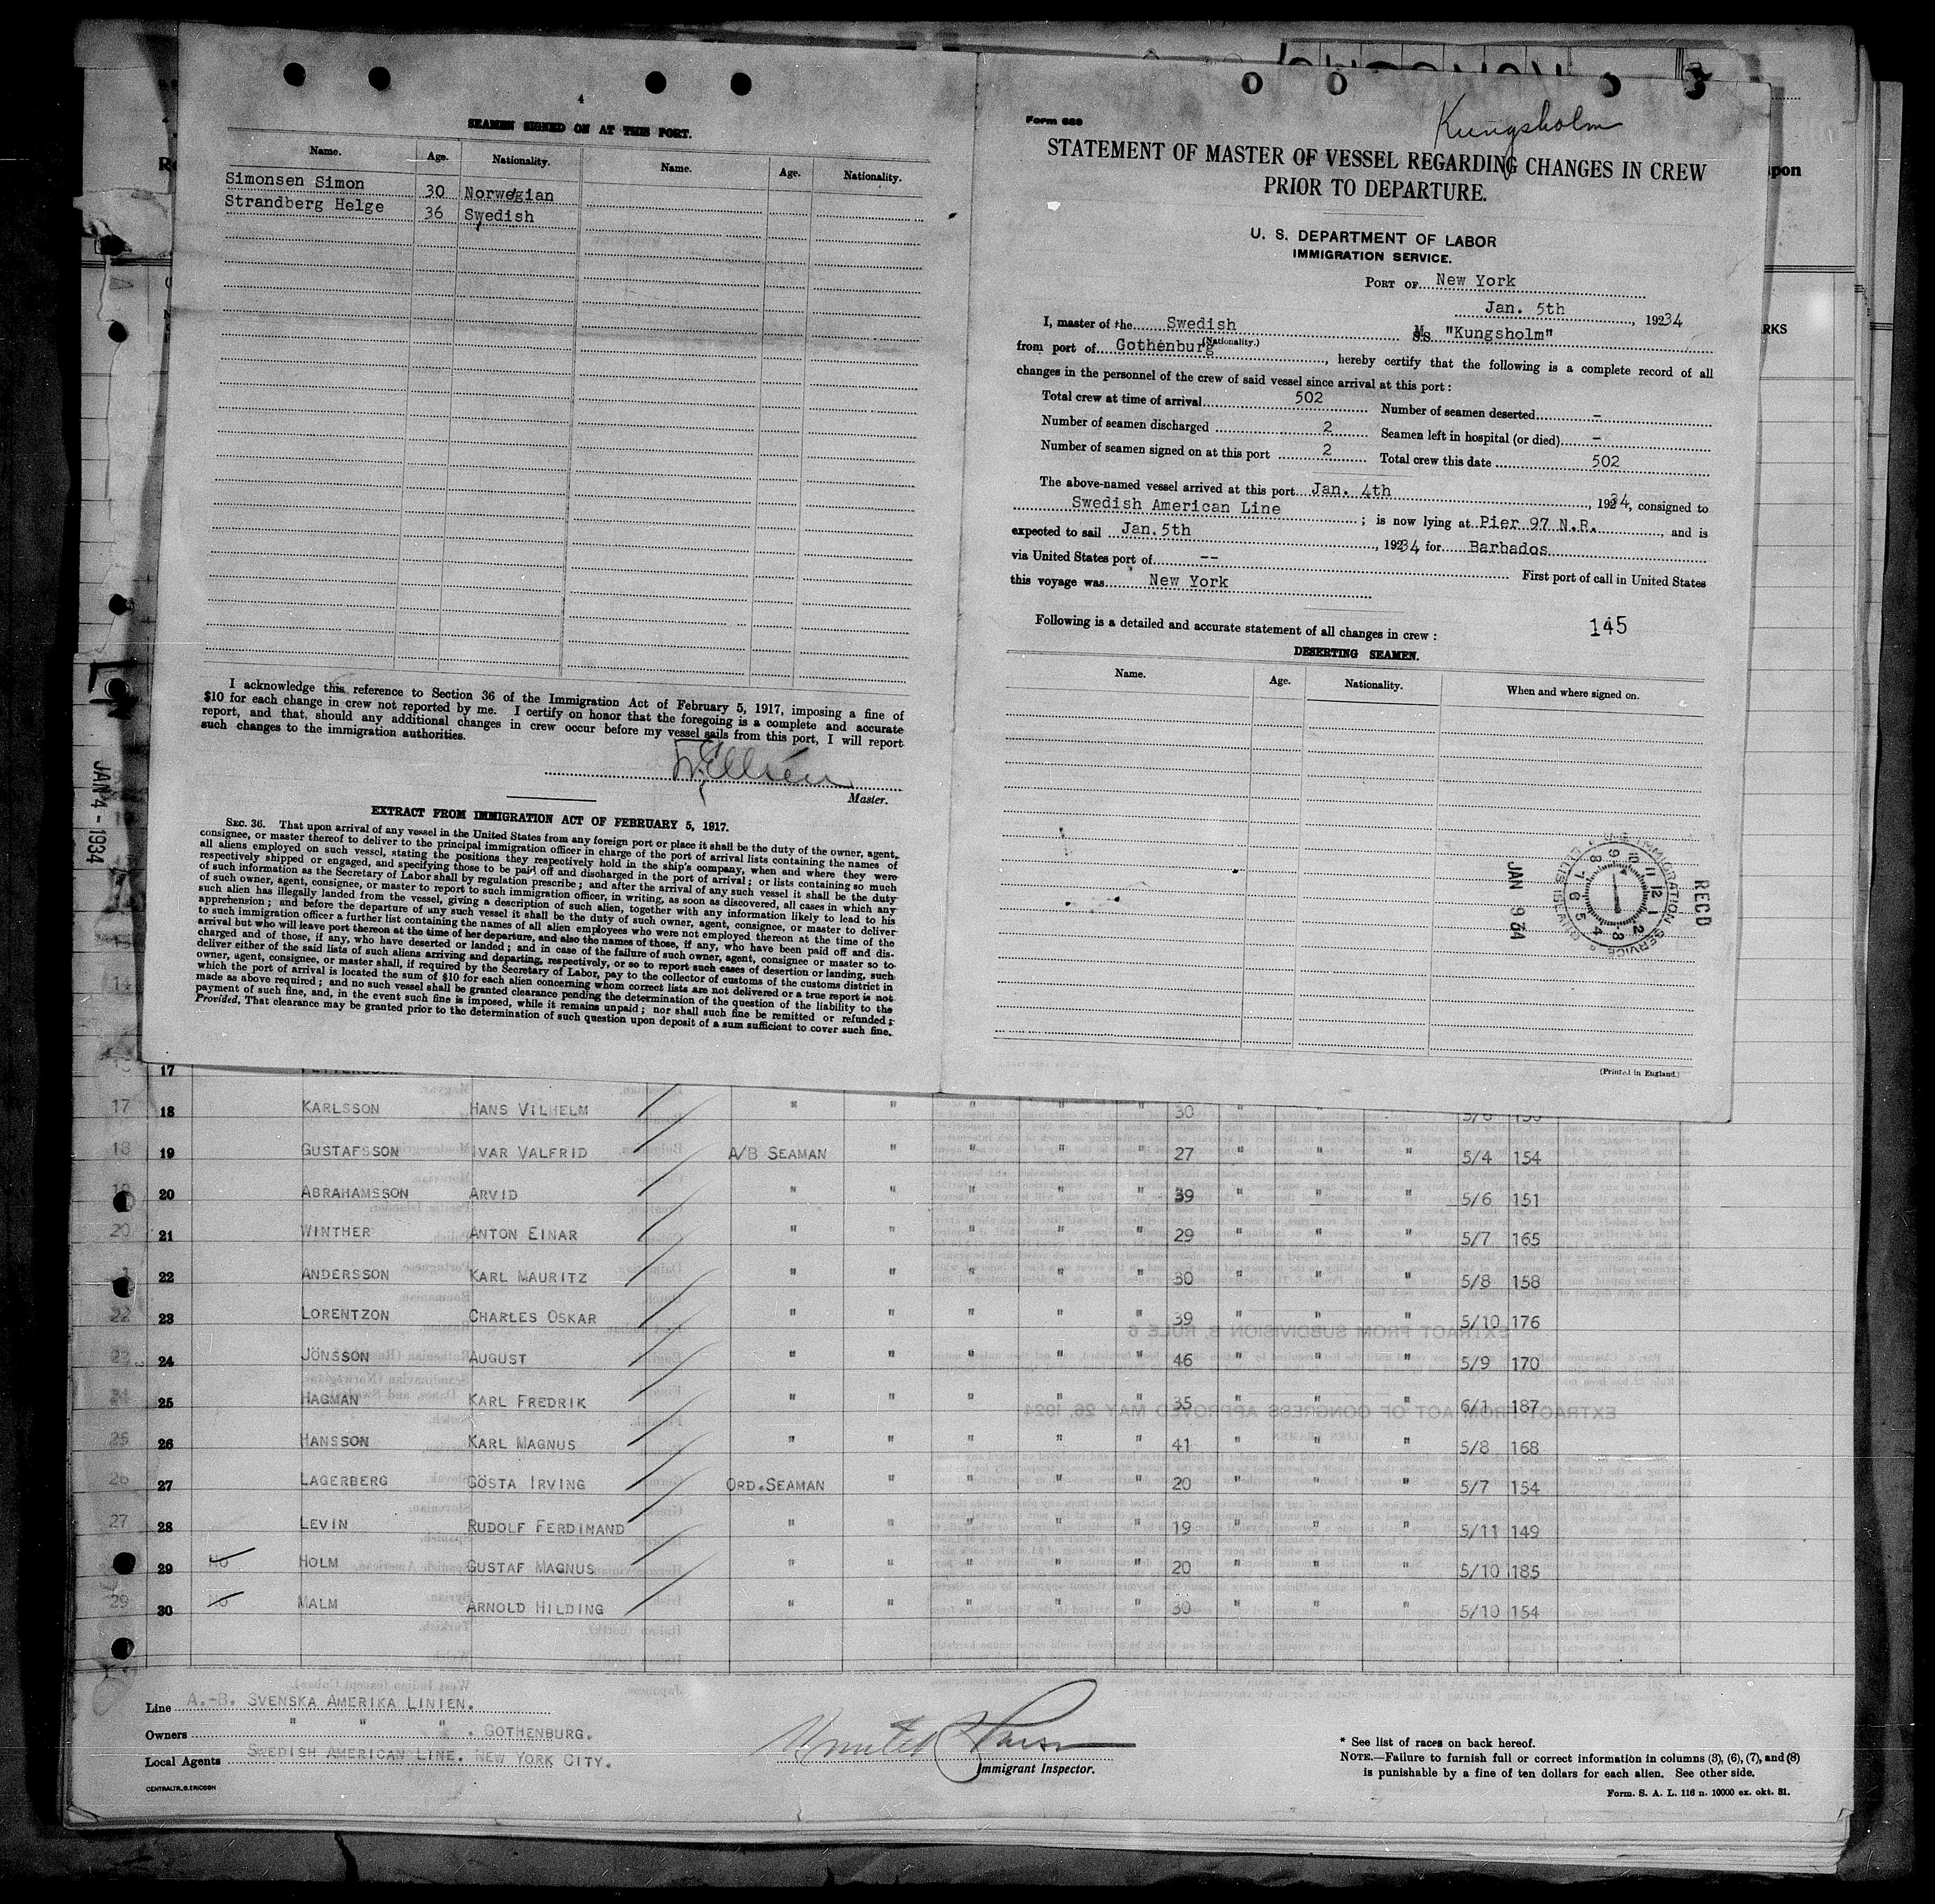 4
SEAMEN SIGNED ON AT THIS PORT.
Name. Age. Nationality. Name. Age. Nationality.
Simonsen Simon 30 Norwegian
Strandberg Helge 36 Swedish
I acknowledge this reference to Section 36 of the Immigration Act of February 5, 1917, imposing a fine of
$10 for each change in crew not reported by me. I certify on honor that the foregoing is a complete and accurate
report, and that, should any additional changes in crew occur before my vessel sails from this port, I will report
such changes to the immigration authorities.
Master.
EXTRACT FROM IMMIGRATION ACT OF FEBRUARY 5, 1917.
SEC. 36. That upon arrival of any vessel in the United States from any foreign port or place it shall be the duty of the owner, agent,
consignee, or master thereof to deliver to the principal immigration officer in charge of the port of arrival lists containing the names of
all aliens employed on such vessel, stating the positions they respectively hold in the ship's company, when and where they were
respectively shipped or engaged, and specifying those to be paid off and discharged in the port of arrival; or lists containing so much
of such information as the Secretary of Labor shall by regulation prescribe; and after the arrival of any such vessel it shall be the duty
of such owner, agent, consignee, or master to report to such immigration officer, in writing, as soon as discovered, all cases in which any
such alien has illegally landed from the vessel, giving a description of such alien, together with any information likely to lead to his
apprehension; and before the departure of any such vessel it shall be the duty of such owner, agent, consignee, or master to deliver
to such immigration officer a further list containing the names of all alien employees who were not employed thereon at the time of the
arrival but who will leave port thereon at the time of her departure, and also the names of those, if any, who have been paid off and dis-
charged and of those, if any, who have deserted or landed; and in case of the failure of such owner, agent, consignee or master so to
deliver either of the said lists of such aliens arriving and departing, respectively, or so to report such cases of desertion or landing, such
owner, agent, consignee, or master shall, if required by the Secretary of Labor, pay to the collector of customs of the customs district in
which the port of arrival is located the sum of $10 for each alien concerning whom correct lists are not delivered or a true report is not
made as above required; and no such vessel shall be granted clearance pending the determination of the question of the liability to the
payment of such fine, and, in the event such fine is imposed, while it remains unpaid; nor shall such fine be remitted or refunded;
Provided, That clearance may be granted prior to the determination of such question upon deposit of a sum sufficient to cover such fine.
Form 689
Kungsholm
STATEMENT OF MASTER OF VESSEL REGARDING CHANGES IN CREW
PRIOR TO DEPARTURE.
U. S. DEPARTMENT OF LABOR
IMMIGRATION SERVICE.
PORT OF New York
Jan. 5th, 19234
I, master of the Swedish M S.S. "Kungsholm"
(Nationality.)
from port of Gothenburg, hereby certify that the following is a complete record of all
changes in the personnel of the crew of said vessel since arrival at this port:
Total crew at time of arrival 502 Number of seamen deserted –
Number of seamen discharged 2 Seamen left in hospital (or died) –
Number of seamen signed on at this port 2 Total crew this date 502
The above-named vessel arrived at this port Jan. 4th, 19234, consigned to
Swedish American Line; is now lying at Pier 97 N.R., and is
expected to sail Jan.5th, 19234 for Barbados
via United States port of -- First port of call in United States
this voyage was New York
Following is a detailed and accurate statement of all changes in crew: 145
DESERTING SEAMEN.
Name. Age. Nationality. When and where signed on.
RECD
JAN 9
U.S. IMMIGRATION SERVICE ELLIS ISLAND
(Printed in England.)
JAN 4 - 1934
RKS
17
17 18 KARLSSON HANS VILHELM " " " " " " 30 " " "
18 19 GUSTAFSSON IVAR VALFRID A/B SEAMAN " " " " " 27 " " " 5/4 154
20 ABRAHAMSSON ARVID " " " " " 39 " " " 5/6 151
20 21 WINTHER ANTON EINAR " " " " " 29 " " " 5/7 165
22 ANDERSSON KARL MAURITZ " " " " " 30 " " " 5/8 158
22 23 LORENTZON CHARLES OSKAR " " " " " 39 " " " 5/10 176
23 24 JÖNSSON AUGUST " " " " " 46 " " " 5/9 170
24 25 HAGMAN KARL FREDRIK " " " " " 35 " " " 6/1 187
25 26 HANSSON KARL MAGNUS " " " " " 41 " " " 5/8 168
26 27 LAGERBERG GÖSTA IRVING ORD.SEAMAN " " " " 20 " " " 5/7 154
27 28 LEVIN RUDOLF FERDINAND " " " " " 19 " " " 5/11 149
29 HOLM GUSTAF MAGNUS " " " " " 20 " " " 5/10 185
29 30 MALM ARNOLD HILDING " " " " " 30 " " " 5/10 154
Line A.-B. SVENSKA AMERIKA LINIEN.
Owners " " " . GOTHENBURG.
Local Agents SWEDISH AMERICAN LINE. NEW YORK CITY.
CENTRALTR. G. ERICSON
Immigrant Inspector.
* See list of races on back hereof.
NOTE.—Failure to furnish full or correct information in columns (3), (6), (7), and (8)
is punishable by a fine of ten dollars for each alien. See other side.
Form. S. A. L. 116 n. 10000 ex. okt. 31.